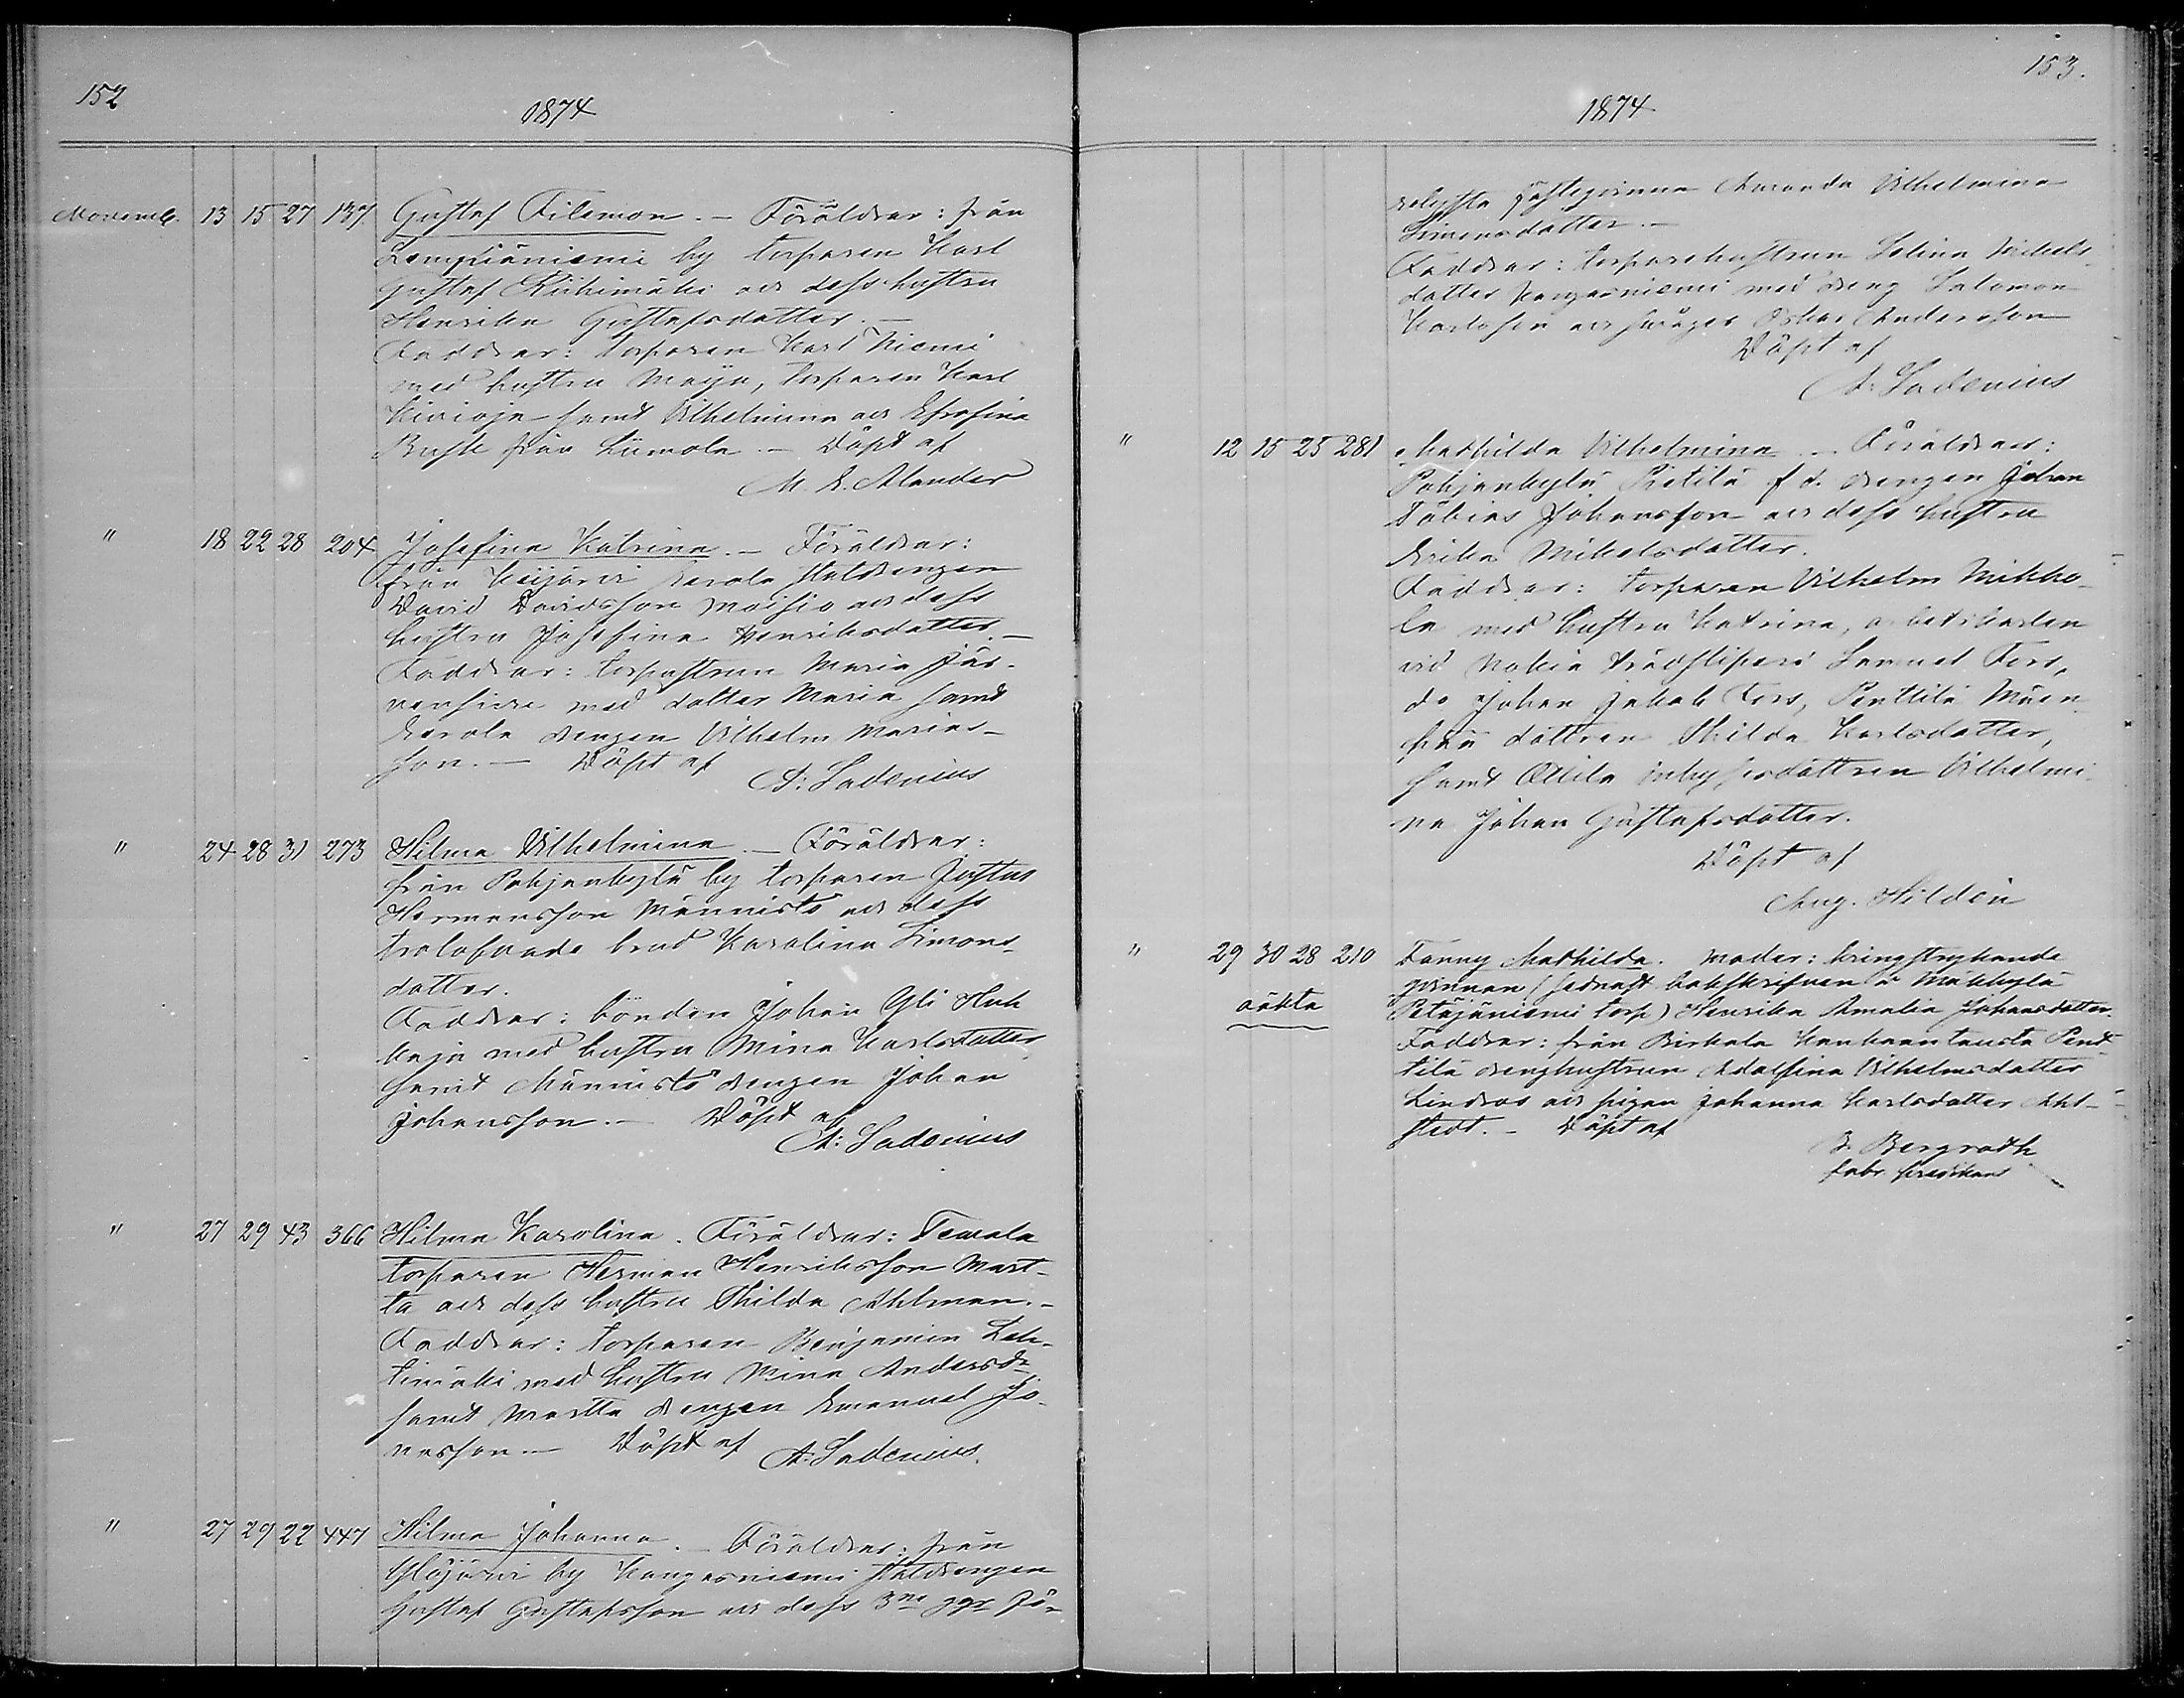 152
1874
Novemb. 13 15 27 137 Gustaf Filemon. — Föräldrar: från
Lempiäniemi by torparen Karl
Gustaf Riihimäki och dess hustru
Henrika Gustafsdotter. —
Faddrar: torparen Karl Niemi
med hustru Maija, torparen Karl
Kivioja samt Vilhelmina och Efrosina
från Liimola. — Döpt af
M. E. Alander
" 18 22 28 204 Josefina Katrina. — Föräldrar:
från Keijärvi Eerola staldrengen
David Davidsson Moisio och dess
hustru Josefina Henriksdotter. —
Faddrar: torphustrun Maria Jär-
vensivu med dotter Maria samt
Eerola drengen Vilhelm Marias-
son. — Döpt af
A: Sadenius
" 24 28 31 273 Hilma Vilhelmina. — Föräldrar:
från Pohjankylä by torparen Justus
Hermansson Männistö och dess
trolofvade brud Karolina Simons-
dotter.
Faddrar: bonden Johan Yli Huh
kaja med hustru Mina Karlsdotter
samt Männistö drengen Johan
Johansson. — Döpt af
A: Sadenius
" 27 29 43 366 Hilma Karolina. Föräldrar: Tevala
torparen Herman Henriksson Mart-
ta och dess hustru Thilda Ahlman. —
Faddrar: torparen Benjamin Leh-
timäki med hustru Mina Andersdr
samt Martta drengen Emanuel Jo-
nasson. — Döpt af A: Sadenius.
" 27 29 22 447 Hilma Johanna. — Föräldrar: från
Ylöjärvi by Kangasniemi staldrengen
Gustaf Gustafsson och dess 3ne ggr på-
153.
1874
relysta fästeqvinna Amanda Vilhelmina
Simonsdotter. —
Faddrar: torparehustrun Selina Mikels-
dotter Kangasniemi med dreng Salomon
Karlsson och svåger Oskar Andersson
Döpt af
A: Sadenius
" 12 15 25 281 Mathilda Vilhelmina. — Föräldrar:
Pohjankylä Pietilä f. d. drengen Johan
Tobias Johansson och dess hustru
Erika Mikelsdotter.
Faddrar: torparen Vilhelm Mikko-
la med hustru Katrina, arbetskarlen
vid Nokia träsliperi Samuel Fors,
do Johan Jakob Fors, Penttilä Mäen-
pää dottren Thilda Karlsdotter,
samt Ollila inhysesdottren Vilhelmi-
na Johan Gustafsdotter.
Döpt af
Aug. Hildén
" 29 30 28 210 Fanny Mathilda. Moder: kringstrykande
oäkta
qvinnan (sednast bokskrifven å Mäkkylä
Petäjäniemi torp) Henrika Amalia Johansdotter.
Faddrar: från Birkala Kankaantausta Pent-
tilä drenghustrun Adolfina Vilhelmsdotter
Lindroos och pigan Johanna Karlsdotter Ahl-
stedt. — Döpt af
B. Bergroth
fabr. predikant